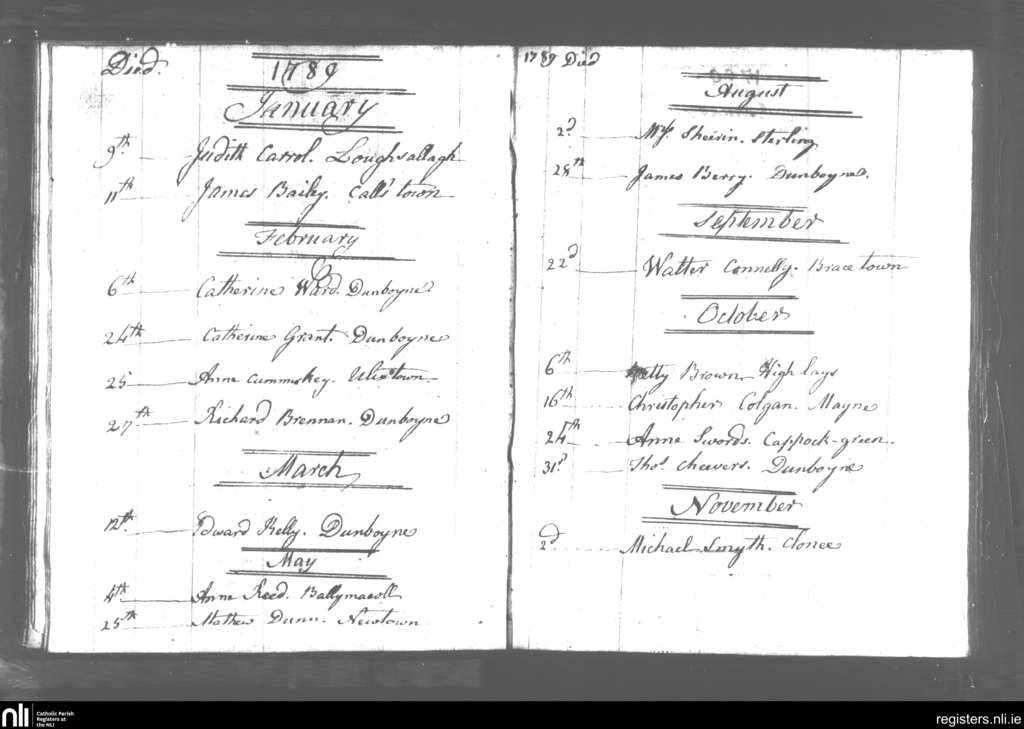 Died.
1789
January
9th Judith Carrol. Loughsallagh
11th James Bailey. Calls town
February
6th Catherine Ward. Dunboyne
24th Catherine Grant. Dunboyne
25 Anne Cummskey.
27th Richard Brennan. Dunboyne
March
12th Edward Kelly. Dunboyne
May
4th Anne Reed. Ballymacoll
25th Mathew Dunn. Newtown
1789 Died
August
2d Mrs. Sheirin. Sterling
28th James Berry. Dunboyne.
September
22d Walter Connelly. Brace town
October
6th Brown High lays
16th Christopher Colgan. Mayne
24th Anne Swords. Cappock-green.
31st Thos. Cheevers. Dunboyne
November
2d Michael Smyth. Clonee
nli Catholic Parish
Registers at
the NLI
registers.nli.ie